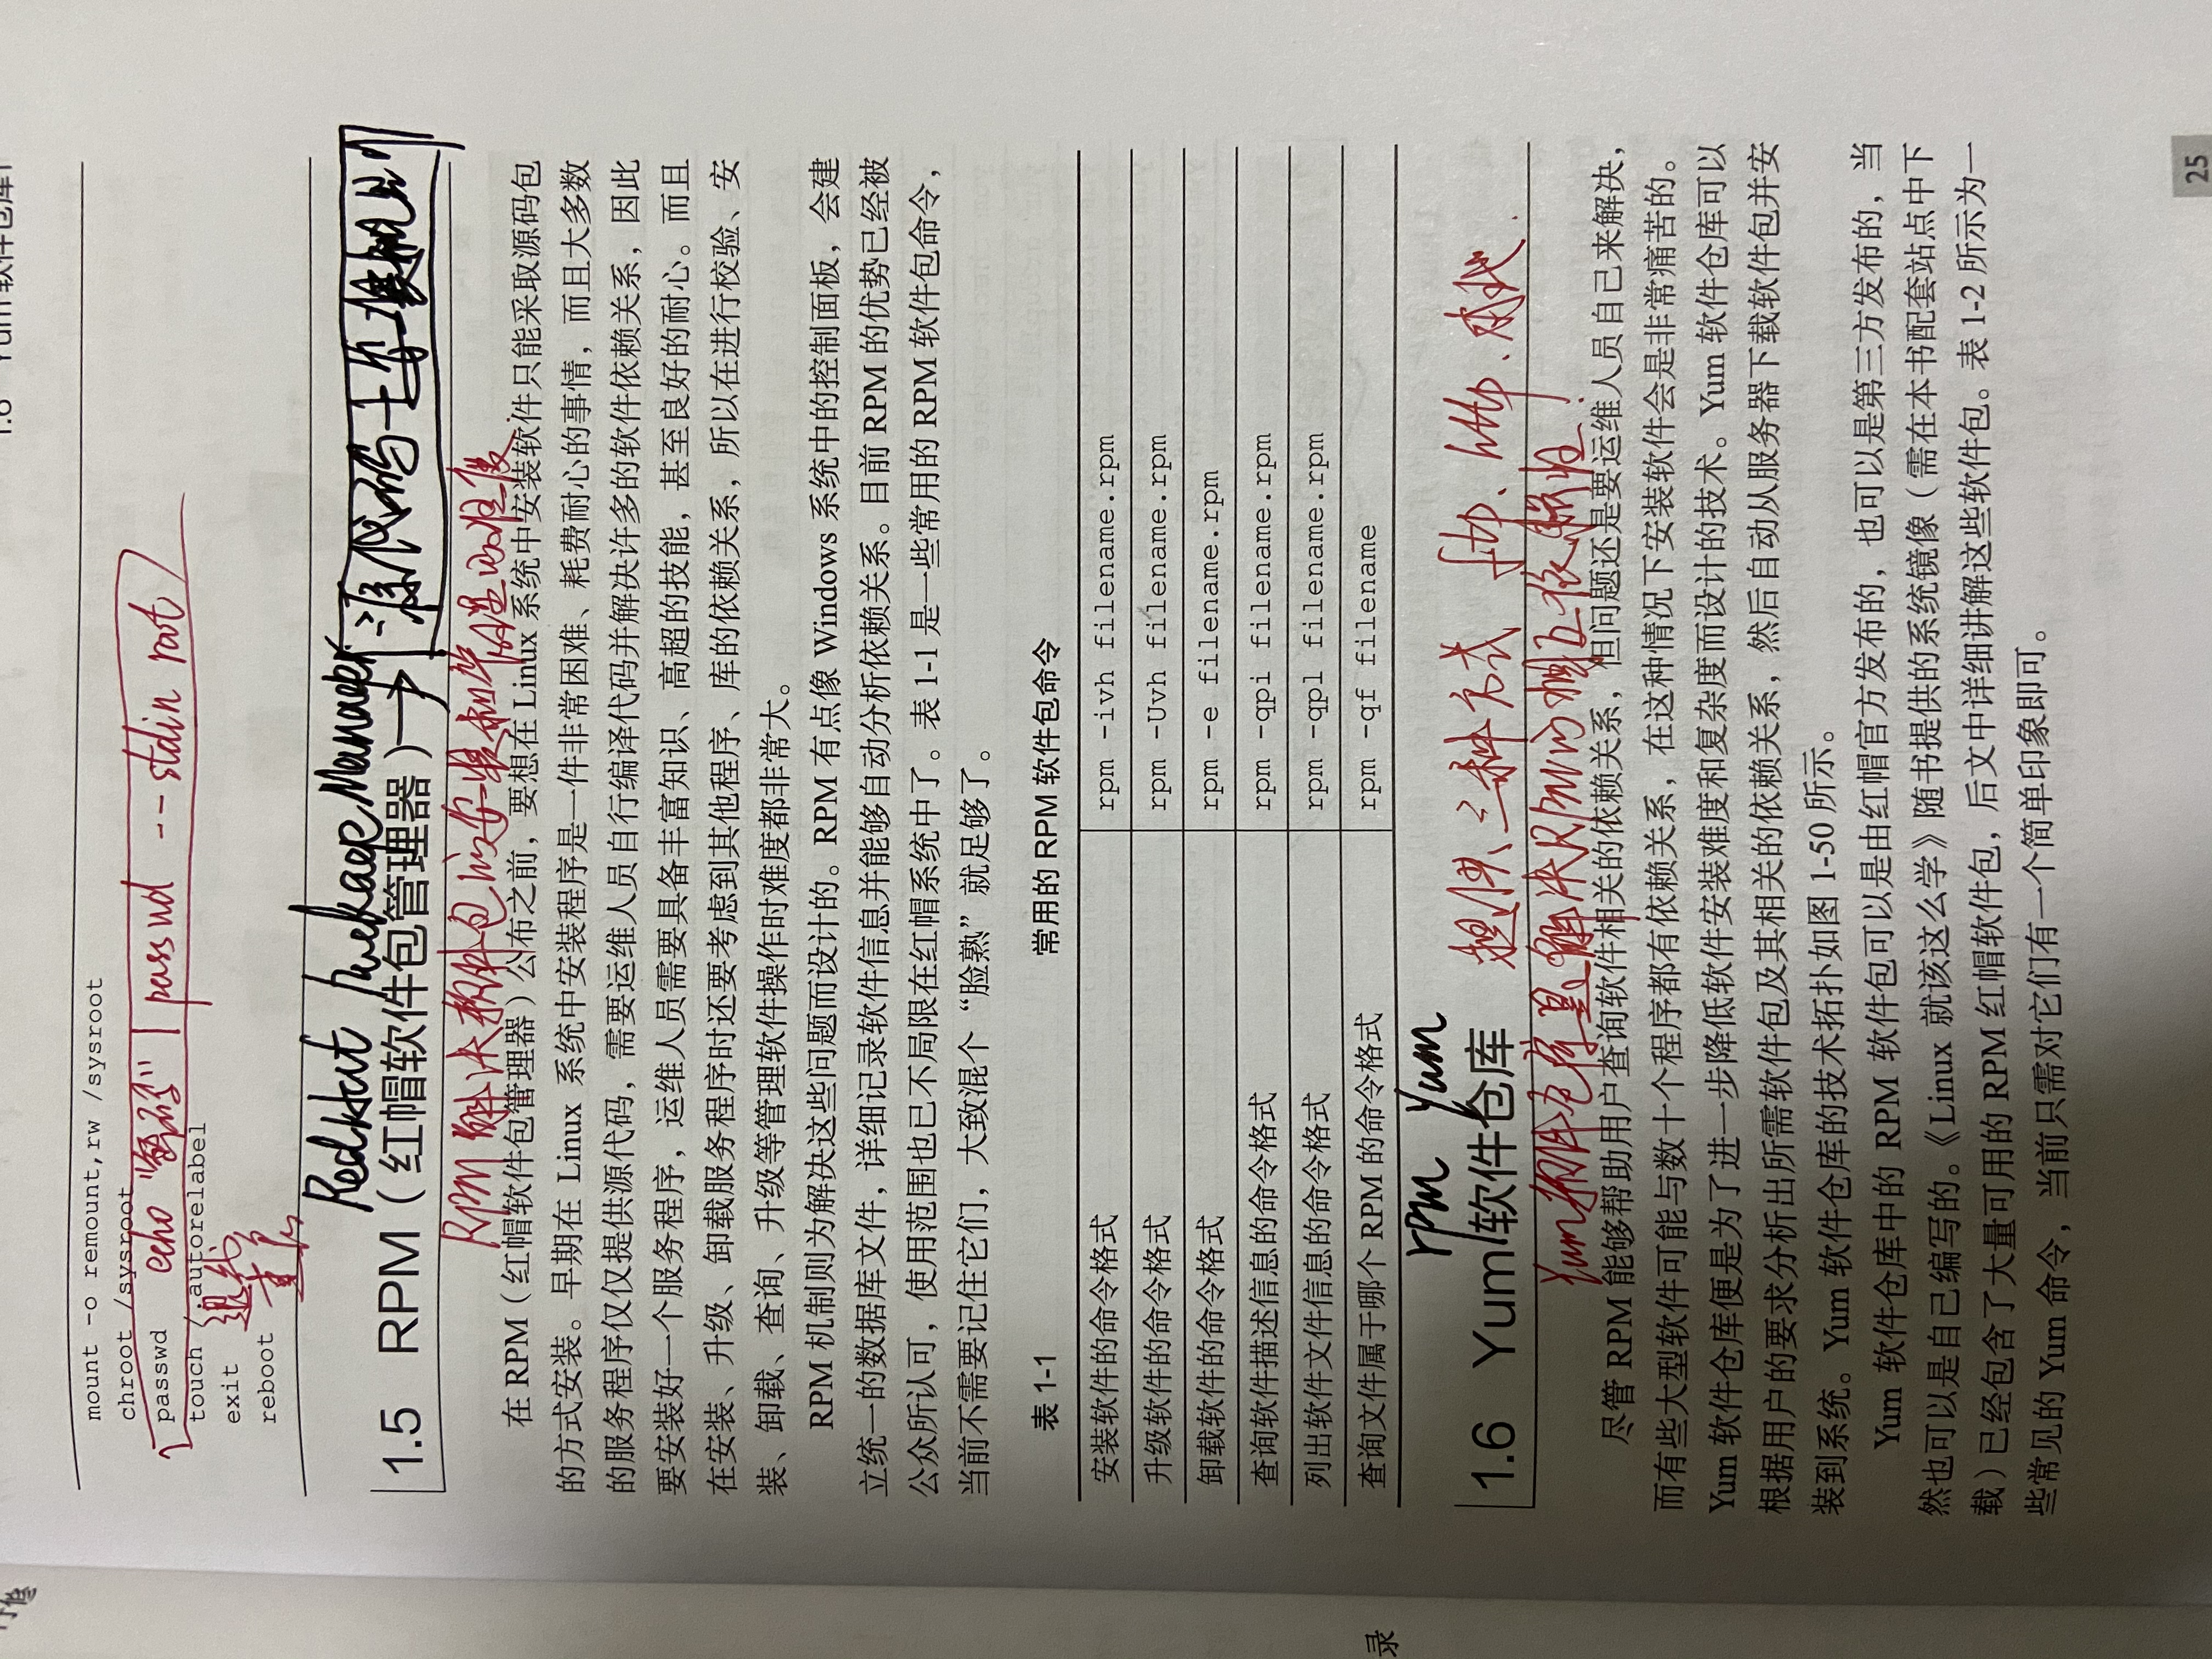 1.6 Yum 软件仓库
mount -o remount,rw /sysroot
chroot /sysroot
passwd echo "密码" | passwd --stdin root
touch /.autorelabel
exit 退出
reboot 重启
RedHat Package Manager
1.5 RPM（红帽软件包管理器）→ 源代码+安装规则
RPM 解决软件包的安装和管理的难度.
在 RPM（红帽软件包管理器）公布之前，要想在 Linux 系统中安装软件只能采取源码包
的方式安装。早期在 Linux 系统中安装程序是一件非常困难、耗费耐心的事情，而且大多数
的服务程序仅仅提供源代码，需要运维人员自行编译代码并解决许多的软件依赖关系，因此
要安装好一个服务程序，运维人员需要具备丰富知识、高超的技能，甚至良好的耐心。而且
在安装、升级、卸载服务程序时还要考虑到其他程序、库的依赖关系，所以在进行校验、安
装、卸载、查询、升级等管理软件操作时难度都非常大。
RPM 机制则为解决这些问题而设计的。RPM 有点像 Windows 系统中的控制面板，会建
立统一的数据库文件，详细记录软件信息并能够自动分析依赖关系。目前 RPM 的优势已经被
公众所认可，使用范围也已不局限在红帽系统中了。表 1-1 是一些常用的 RPM 软件包命令，
当前不需要记住它们，大致混个“脸熟”就足够了。
表 1-1 常用的 RPM 软件包命令
安装软件的命令格式 rpm -ivh filename.rpm
升级软件的命令格式 rpm -Uvh filename.rpm
卸载软件的命令格式 rpm -e filename.rpm
查询软件描述信息的命令格式 rpm -qpi filename.rpm
列出软件文件信息的命令格式 rpm -qpl filename.rpm
查询文件属于哪个 RPM 的命令格式 rpm -qf filename
录
rpm Yum
1.6 Yum 软件仓库 提供三种方式 ftp、http、本地.
Yum软件仓库是解决RPM的相互依赖性！
尽管 RPM 能够帮助用户查询软件相关的依赖关系，但问题还是要运维人员自己来解决，
而有些大型软件可能与数十个程序都有依赖关系，在这种情况下安装软件会是非常痛苦的。
Yum 软件仓库便是为了进一步降低软件安装难度和复杂度而设计的技术。Yum 软件仓库可以
根据用户的要求分析出所需软件包及其相关的依赖关系，然后自动从服务器下载软件包并安
装到系统。Yum 软件仓库的技术拓扑如图 1-50 所示。
Yum 软件仓库中的 RPM 软件包可以是由红帽官方发布的，也可以是第三方发布的，当
然也可以是自己编写的。《Linux 就该这么学》随书提供的系统镜像（需在本书配套站点中下
载）已经包含了大量可用的 RPM 红帽软件包，后文中详细讲解这些软件包。表 1-2 所示为一
些常见的 Yum 命令，当前只需对它们有一个简单印象即可。
25